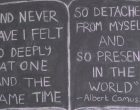 AND NEVER
HAVE I FELT
SO DEEPLY
AT ONE
AND THE
SAME TIME
SO DETACHED
FROM MYSELF
AND
SO PRESENT
IN THE
WORLD
- Albert Camus